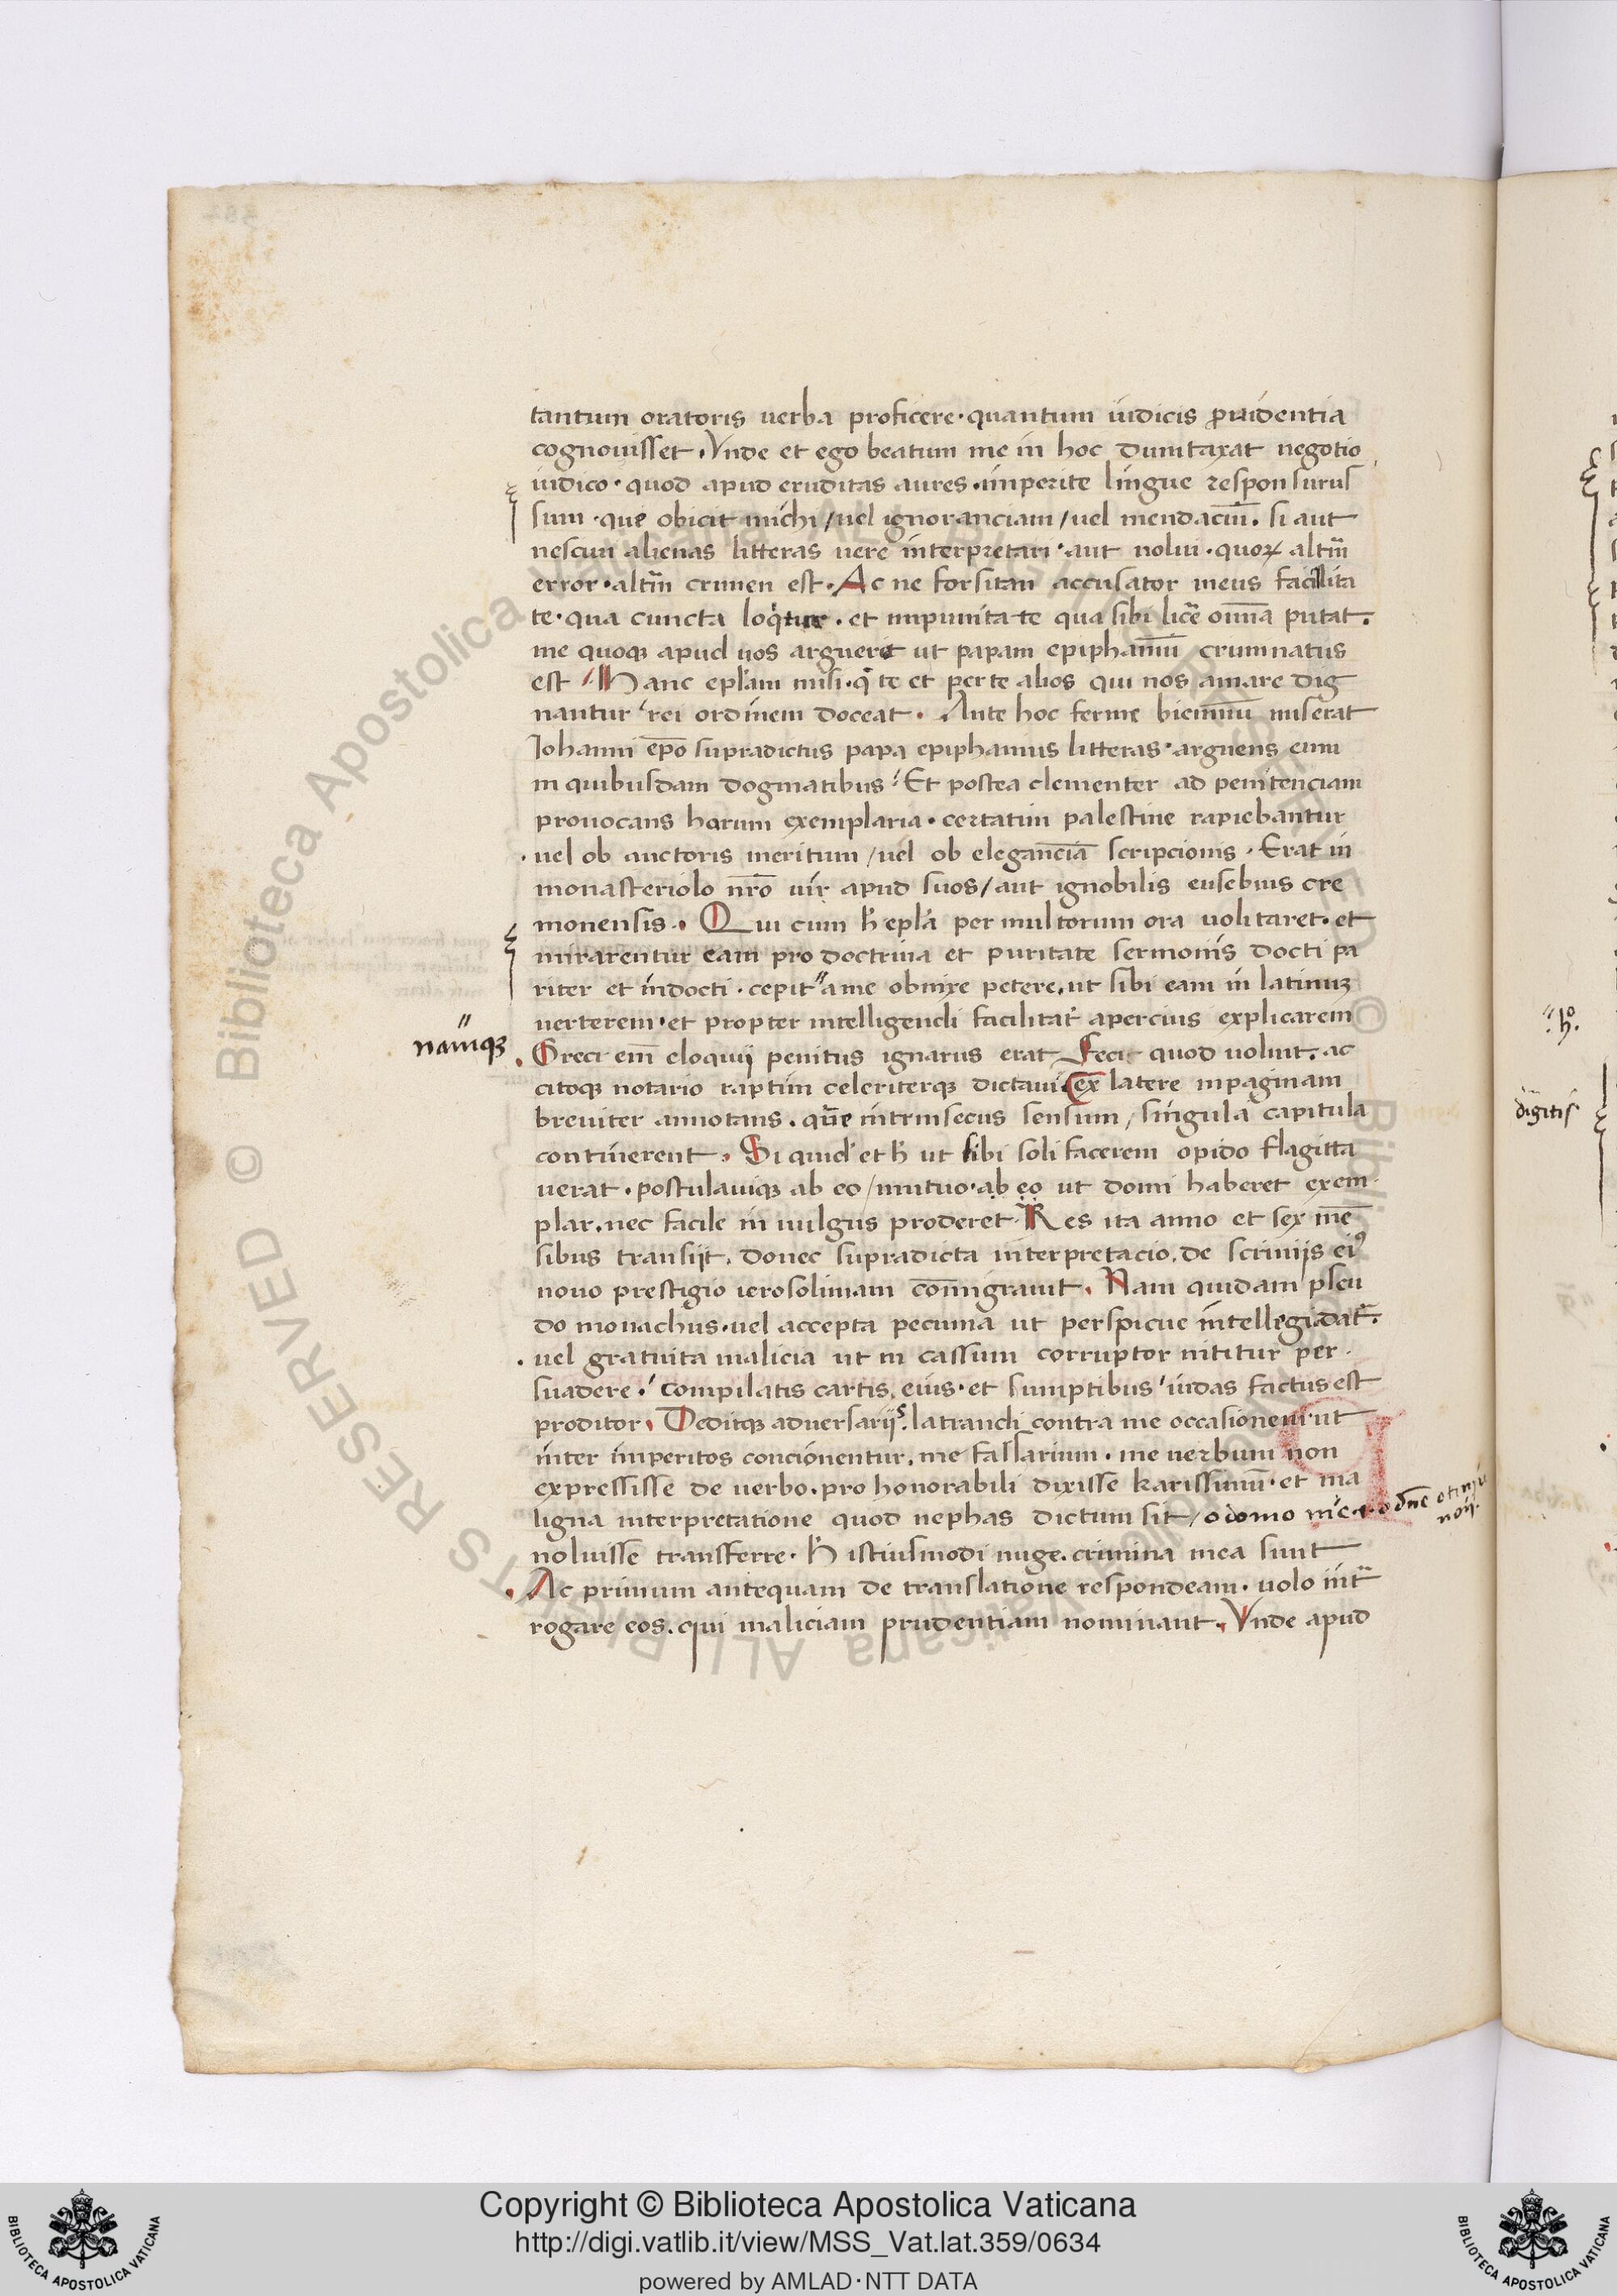 tantum oratoris uerba proficere · quantum iudicis prudentia
cognouisset · Vnde et ego beatum me in hoc dumtaxat negotio
iudico · quod apud eruditas aures · imperite lingue responsurus
sum · que obicit michi / uel ignoranciam / uel mendaciū. si aut
nesciui alienas litteras uere interpretari · aut nolui · quoꝝ altm̄
error · altm̄ crimen est · Ac ne forsitan accusator meus facilita
te · qua cuncta loqͥtur · et impunitate qua sibi licē om̄ia putat.
me quoqꝫ apud uos arguerit ut papam epiphaniū criminatus
est / Hanc epl̄am misi · q̄ te et per te alios qui nos amare dig
nantur ' rei ordinem doceat · Ante hoc ferme bienniū miserat
Iohanni ep̄o supradictus papa epiphanius litteras · arguens eum
in quibusdam dogmatibus : Et postea clementer ad penitenciam
prouocans horum exemplaria · certatim palestine rapiebantur
· uel ob auctoris meritum / uel ob eleganciā scripcionis · Erat in
monasteriolo nr̄o uir apud suos / aut ignobilis eusebius cre
monensis · Qui cum h̄ epl̄a per multorum ora uolitaret · et
mirarentur eam pro doctrina et puritate sermonis docti pa
riter et indocti · cepit" a me obnixe petere, ut sibi eam in latinuꝫ
uerterem · et propter intelligendi facilitat̄ apercius explicarem
" namqꝫ
· Greci em̄ eloquij penitus ignarus erat Feci quod uoluit · ac
citoqꝫ notario raptim celeriterqꝫ dictaui · ex latere in paginam
breuiter annotans · que intrinsecus sensum / singula capitula
continerent · Si quid' et h̄ ut sibi soli facerem opido flagitta
uerat · postulauiqꝫ ab eo / mutuo · ab eo ut domi haberet exem
plar, nec facile in uulgus proderet · Res ita anno et sex mē
sibus transijt, donec supradicta interpretacio, de scrinijs eiꝰ
nouo prestigio ierosolimam com̄igrauit · Nam quidam pseu
do monachus · uel accepta pecunia ut perspicue intellegi dat̄.
· uel gratuita malicia ut in cassum corruptor nititur per
suadere · compilatis cartis, eius · et sumptibus ' iudas factus est
proditor · Deditqꝫ aduersarijs · latrandi contra me occasionem · ut
inter imperitos concionentur, me falsarium · me uerbum non
expressisse de uerbo · pro honorabili dixisse karissimū · et ma
ligna interpretatione quod nephas dictum sit /
noluisse transferre · h̄ istiusmodi nuge · crimina mea sunt
· Ac primum antequam de translatione respondeam · uolo int̄
rogare eos · qui maliciam prudentiam nominant · Vnde apud
" h̊.
digitis
Copyright © Biblioteca Apostolica Vaticana
http://digi.vatlib.it/view/MSS_Vat.lat.359/0634
powered by AMLAD·NTT DATA
BIBLIOTECA APOSTOLICA VATICANA
BIBLIOTECA APOSTOLICA VATICANA
© Biblioteca Apostolica Vaticana ALL RIGHTS RESERVED © Biblioteca Apostolica Vaticana ALL RIGHTS RESERVED